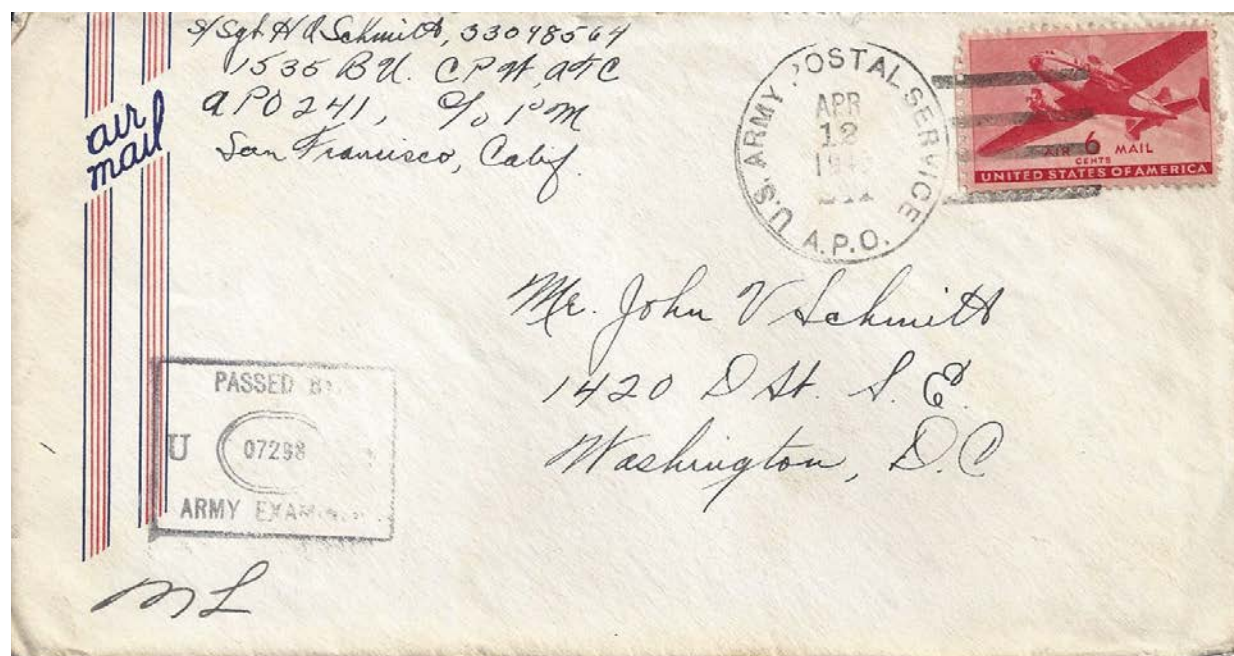 S/Sgt H A Schmitt, 33048564
1535 BU. CPW, ATC
APO 241, C/o PM
San Francisco, Calif.
air
mail
U.S. ARMY POSTAL SERVICE
APR
12
A.P.O.
AIR 6 MAIL
CENTS
UNITED STATES OF AMERICA
Mr. John V Schmitt
1420 D St. S. E.
Washington, D.C
PASSED BY
U 07298
ARMY EXAMINER
ML